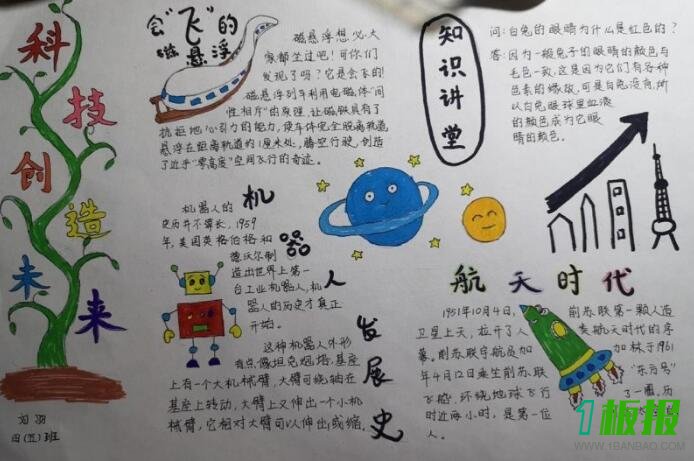 科技创造未来
会“飞”的
磁悬浮
磁悬浮想必大
家都坐过吧！可你们
发现了吗？它是会飞的！
磁悬浮列车利用电磁体“同
性相斥”的原理，让磁铁具有了
抗拒地心引力的能力，使车体完全脱离轨道，
悬浮在距离轨道约1厘米处，腾空行驶，创造
了近乎“零高度”空间飞行的奇迹。
知识讲堂
问：白兔的眼睛为什么是红色的？
答：因为一般兔子的眼睛的颜色与
毛色一致，这是因为它们有各种
色素的缘故，可是白兔没有，所
以白兔眼球里血液
的颜色成为它眼
睛的颜色。
机器人发展史
机器人的
史历并不算长，1959
年，美国英格伯格和
德沃尔制
造出世界上第一
台工业机器人，机
器人的历史才真正
开始。
这种机器人外形
有点像坦克炮塔，基座
上有一个大机械臂，大臂可绕轴在
基座上转动，大臂上又伸出一个小机
械臂，它相对大臂可以伸出或缩，
航天时代
1951年10月4日，
卫星上天，拉开了人
幕，前苏联宇航员加
年4月12日乘坐前苏联
飞船，环绕地球飞行
时近两小时，是第一位
人。
前苏联第一颗人造
类航天时代的序
加林于1961
“东方号”
了一圈，历
刘
四（五）班
1板报
WWW.1BANBAO.COM